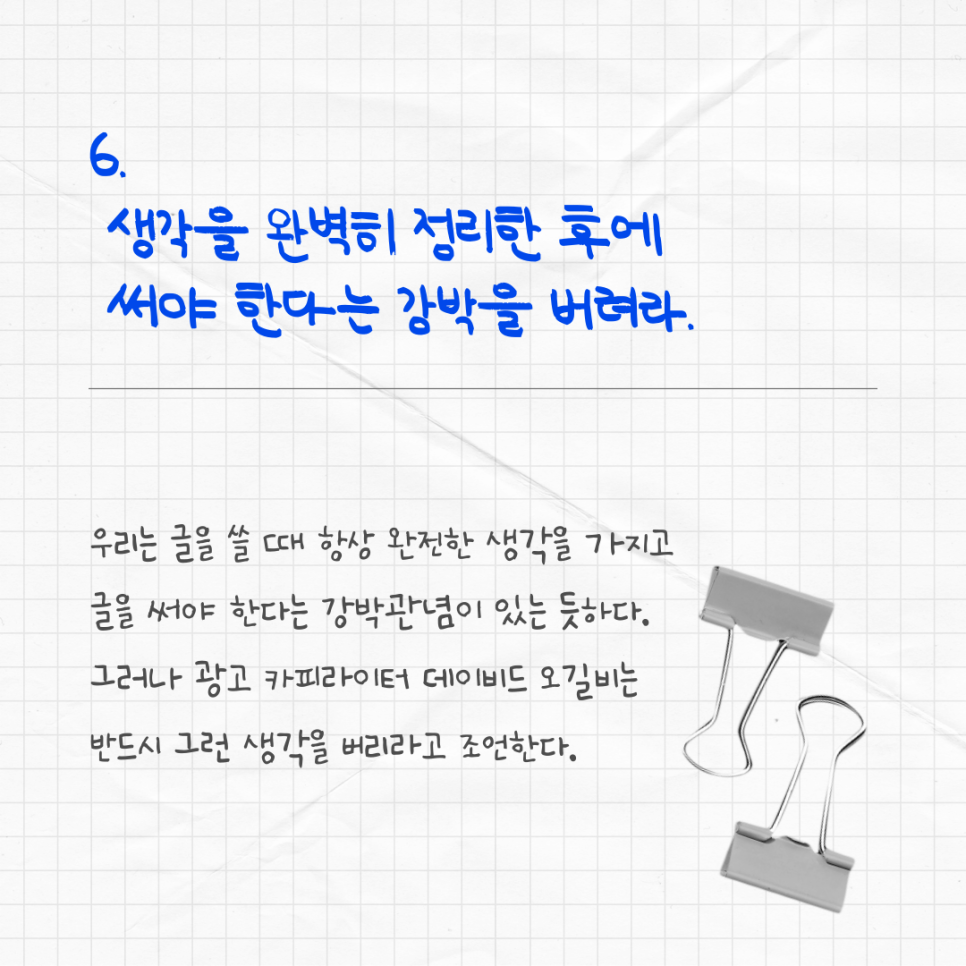 6.
생각을 완벽히 정리한 후에
써야 한다는 강박을 버려라.
우리는 글을 쓸 때 항상 완전한 생각을 가지고
글을 써야 한다는 강박관념이 있는 듯하다.
그러나 광고 카피라이터 데이비드 오길비는
반드시 그런 생각을 버리라고 조언한다.